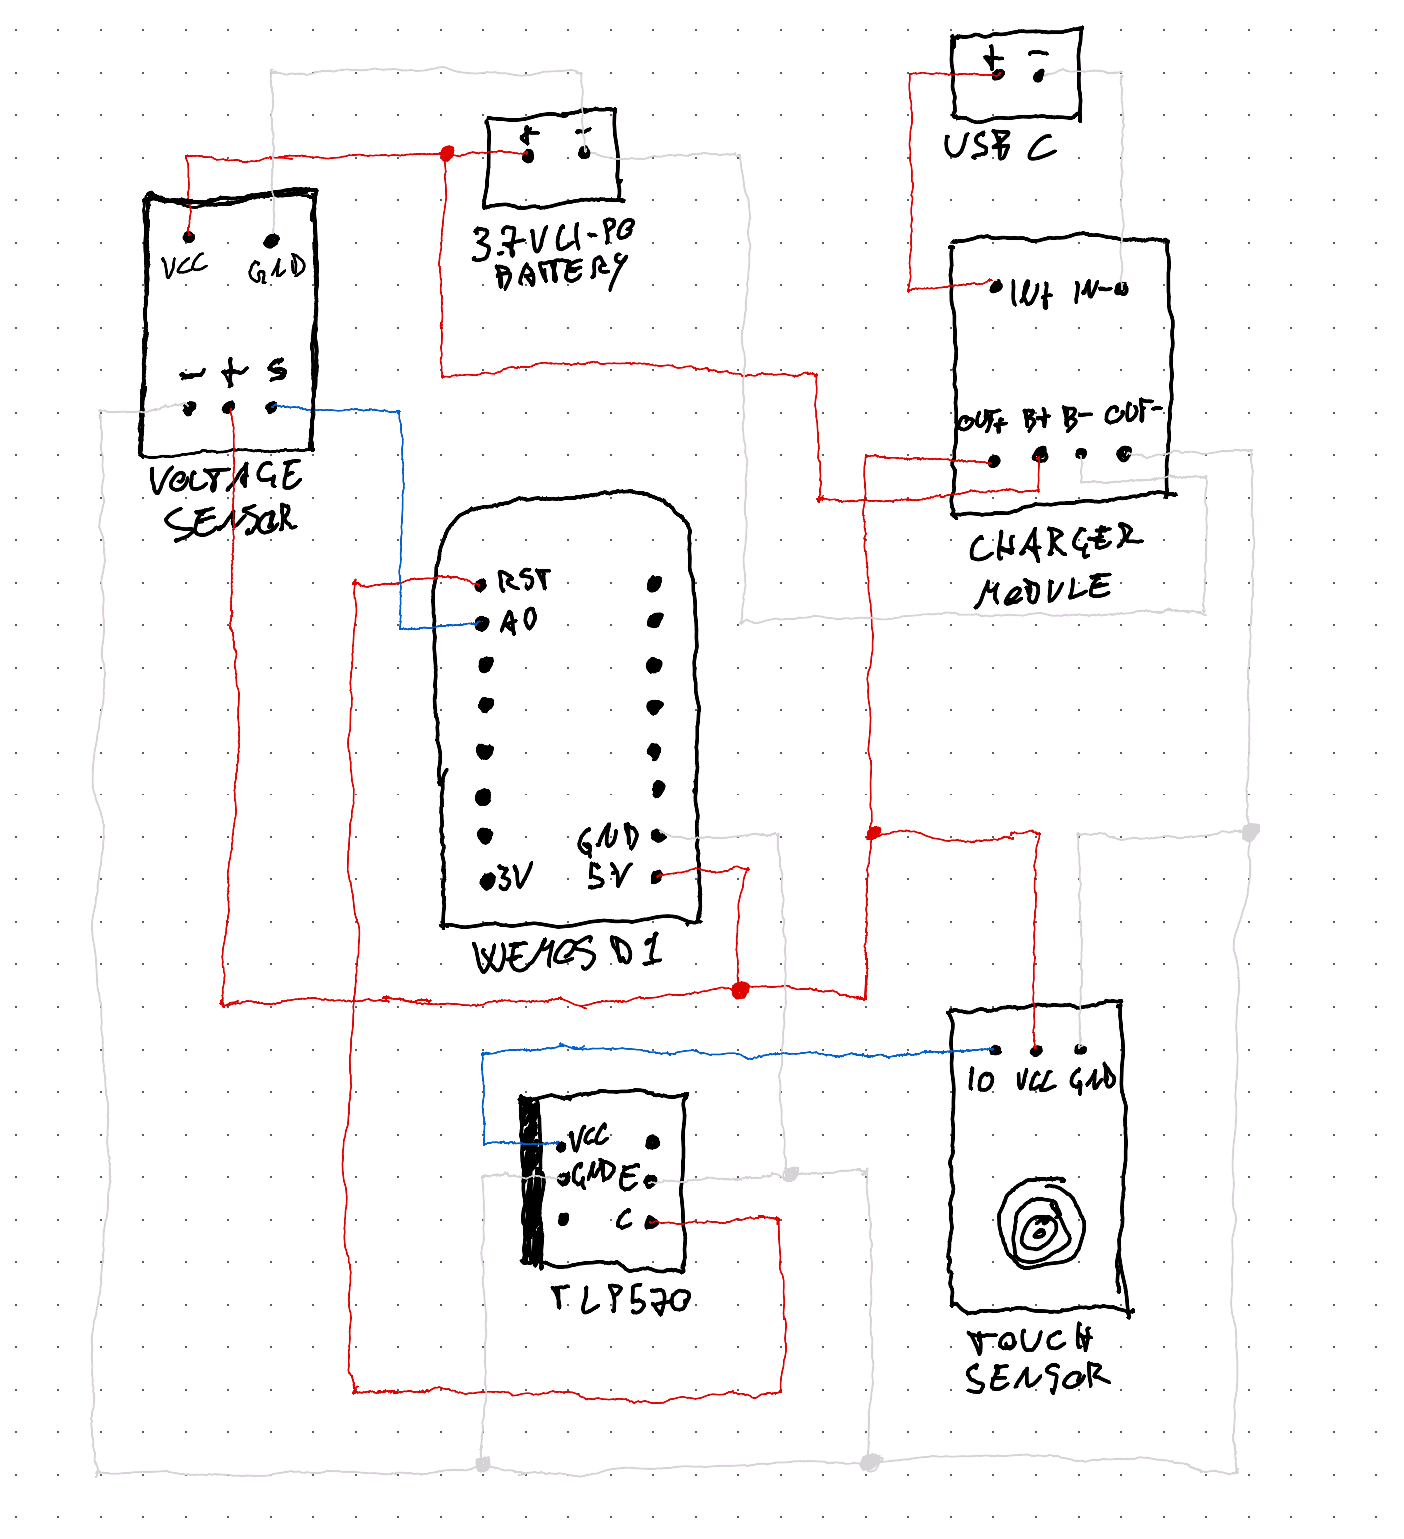 + -
USB C
+ -
3.7V LI-PO
BATTERY
VCC GND
- + S
VOLTAGE
SENSOR
IN+ IN-
OUT+ B+ B- OUT-
CHARGER
MODULE
RST
A0
GND
3V 5V
WEMOS D1
IO VCC GND
TOUCH
SENSOR
VCC
GND E
C
TLP570